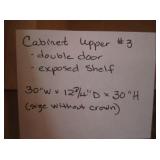 Cabinet Upper #3
- double door
- exposed Shelf
30"W x 12 3/4"D x 30"H
(size without crown)